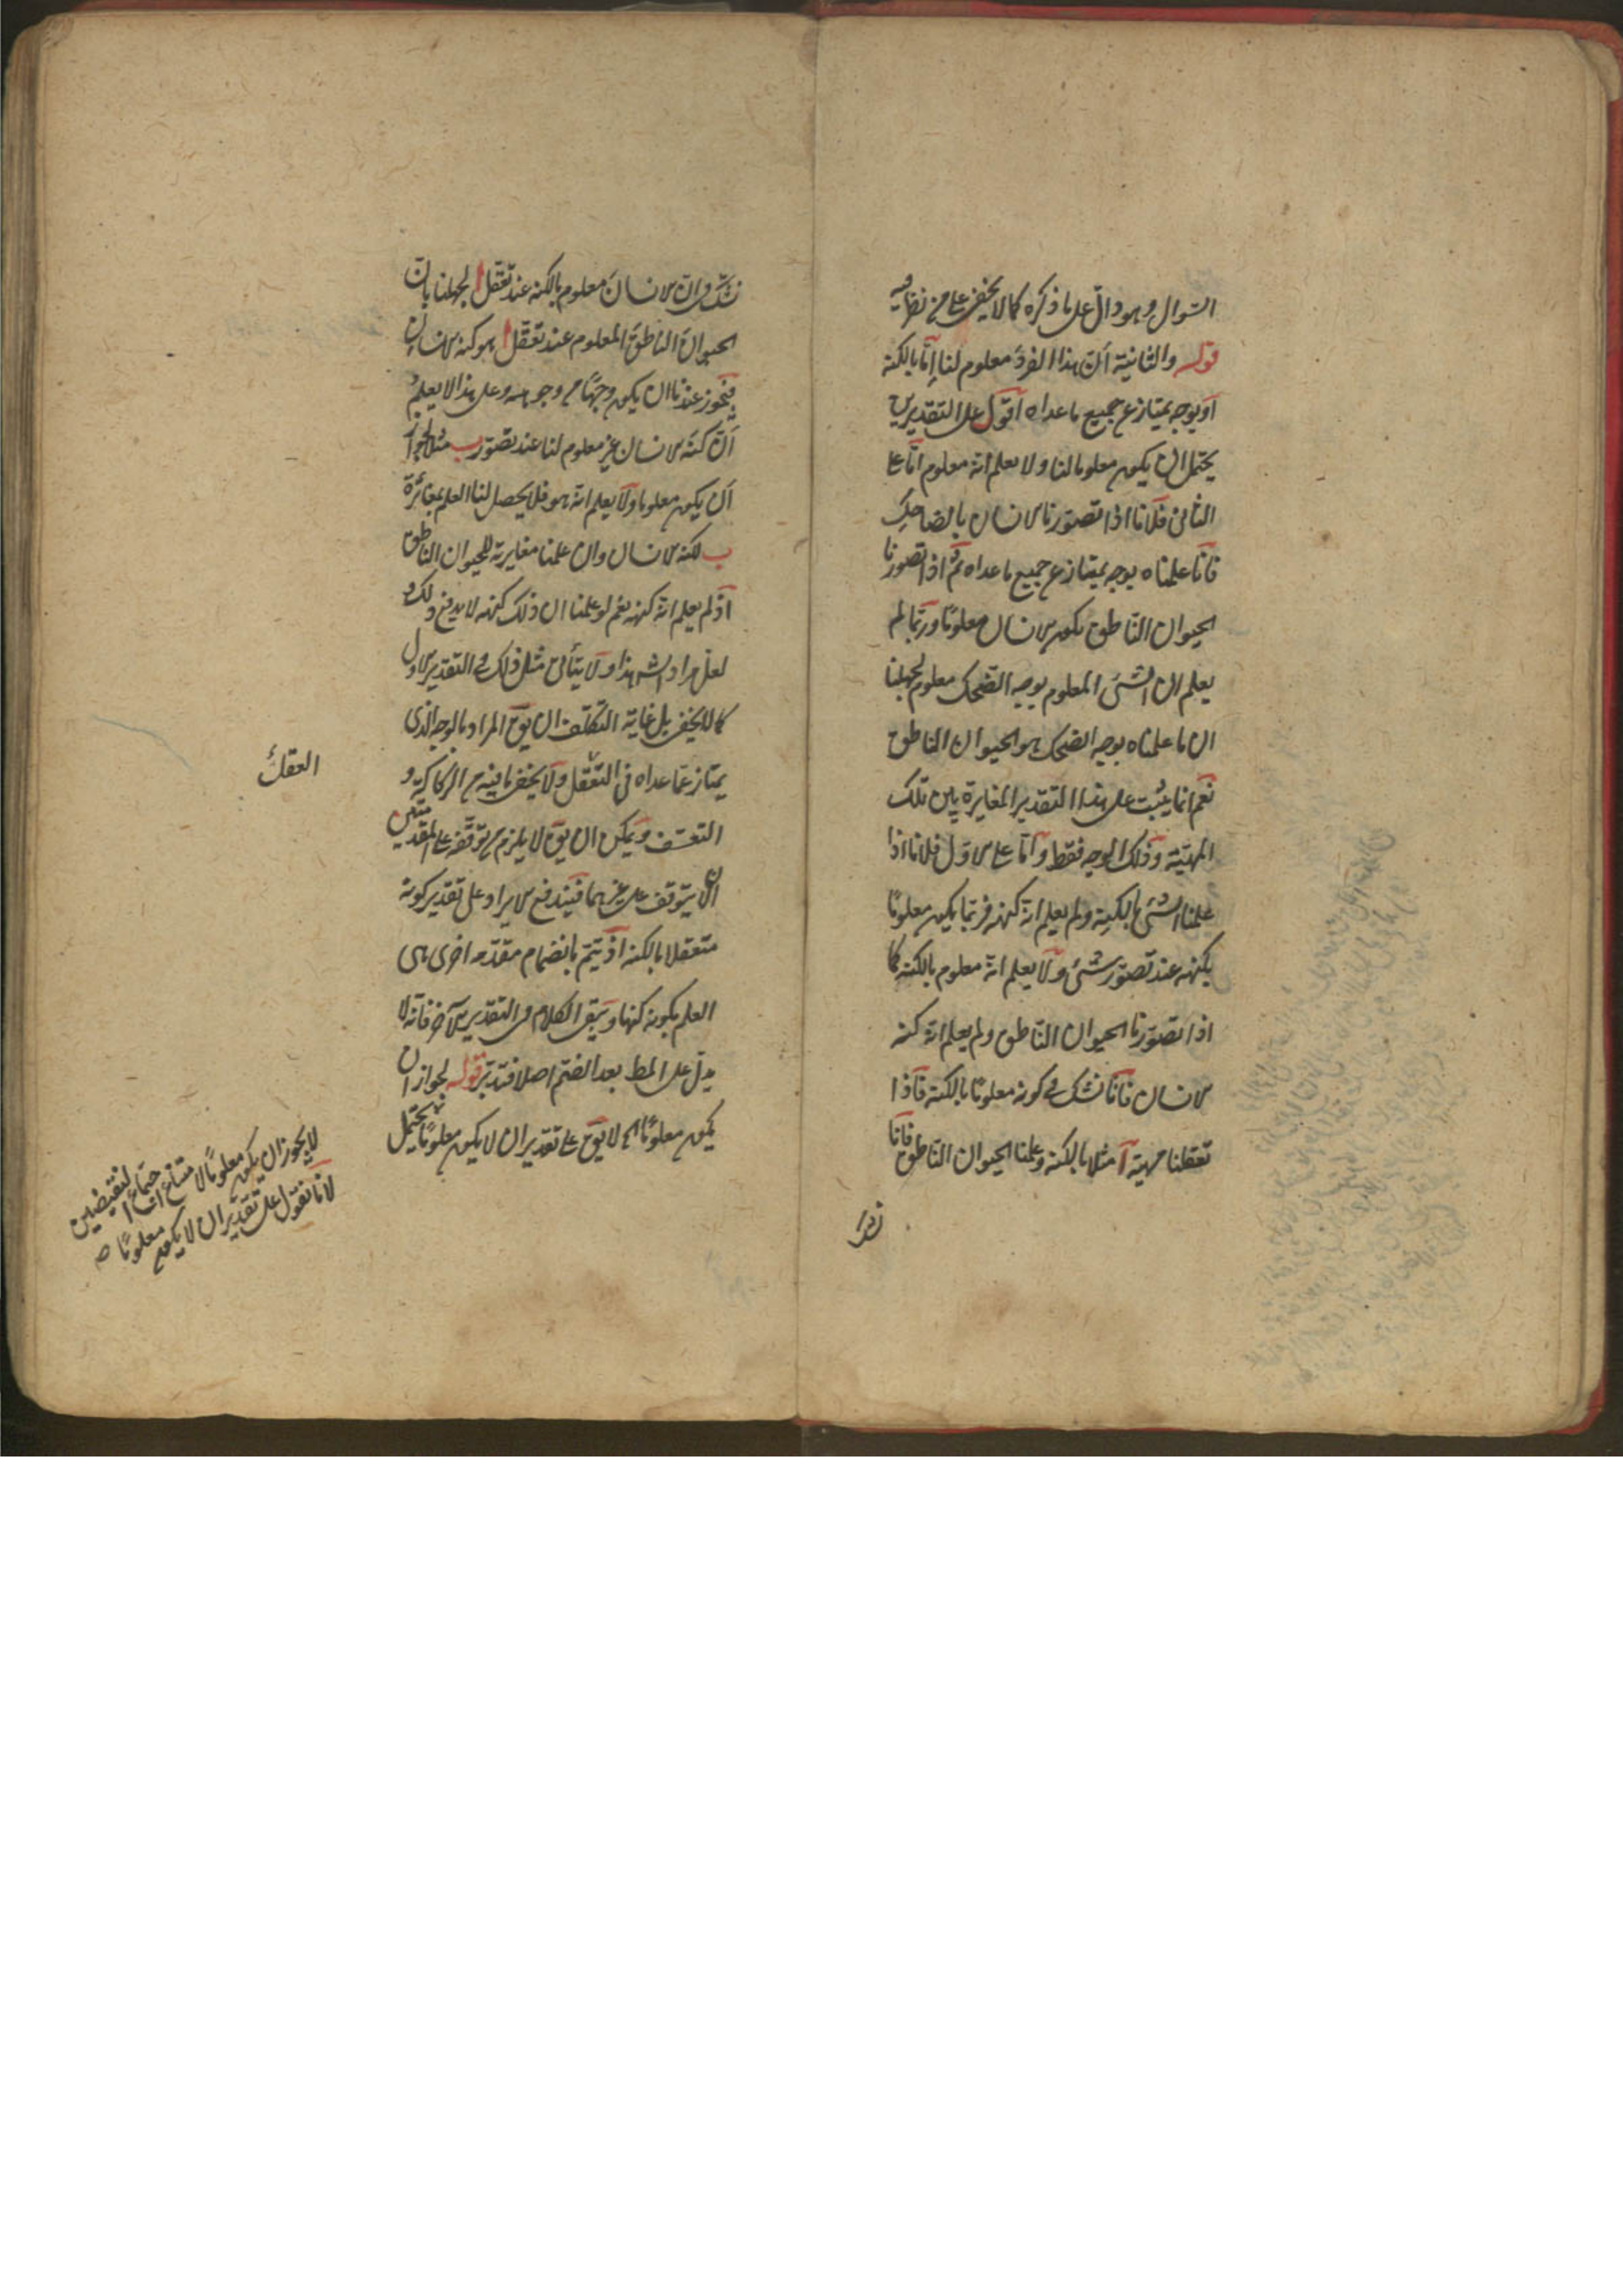 السوال وهو دال على ما ذكره كما لا يخفى على من نظر فيه
قوله والثانية أن هذا الفرد معلوم لنا إما بالكنه
او بوجه يمتاز عن جميع ما عداه اقول على التقديرين
يحتمل ان يكون معلوما لنا ولا يعلم انه معلوم اما على
الثانى فلانا اذا تصورنا الانسان بالضاحك
فانا علمناه بوجه يمتاز عن جميع ما عداه ثم اذا تصورنا
الحيوان الناطق يكون الانسان معلومًا وربما لم
يعلم ان الشئ المعلوم بوجه الضحك معلوم لجهلنا
ان ما علمناه بوجه الضحك هو الحيوان الناطق
نعم انما يثبت على هذا التقدير المغايرة بين تلك
المهيّة وذلك الوجه فقط واما على الاول فلانا اذا
علمنا الشئ بالكنه ولم يعلم انه كنهه فربما يكون معلومًا
بكنهه عند تصور شئ ولا يعلم انه معلوم بالكنه كما
اذا تصوّرنا الحيوان الناطق ولم يعلم انه كنه
الانسان فانا نشك فى كونه معلومًا بالكنه فاذا
تعقلنا مهية آ مثلا بالكنه وعلمنا الحيوان الناطق فانا
نشك فى ان الانسان معلوم بالكنه عند تعقل ا لجهلنا بان
الحيوان الناطق المعلوم عند تعقل ا هو كنه الانسان
فيجوز عندنا ان يكون وجهًا من وجوهه وعلى هذا لا يعلم
ان كنه الانسان غير معلوم لنا عند تصور ب مثلا لجواز
ان يكون معلوما ولا يعلم انه هو فلا يحصل لنا العلم بمغائرة
ب لكنه الانسان وان علمنا مغايرته للحيوان الناطق
اذ لم يعلم انه كنهه نعم لو علمنا ان ذلك كنهه لا يدفع ذلك و
لعل مراد الش هذا ولا يتأتى مثل ذلك فى التقدير الاول
كما لا يخفى بل غاية التكلف ان يق المراد بالوجه الذى
يمتاز عما عداه فى التعقل ولا يخفى ما فيه من الركاكة و
التعسف ويمكن ان يق لا يلزم من توقفه على المقدمتين
ان لا يتوقف على غيرهما فيندفع الايراد على تقدير كونه
متعقلا بالكنه اذ يتم بانضمام مقدمه اخرى هى
العلم بكونه كنها ويبقى الكلام فى التقدير الآخر فانه لا
يدل على المط بعد الضم اصلا فتدبر قوله لجواز ان
يكون معلومًا اه لا يق على تقدير ان لا يكون معلومًا يحتمل
العقل
لا يجوز ان يكون معلومًا لامتناع اجتماع النقيضين
لانا نقول على تقدير ان لا يكون معلومًا صح